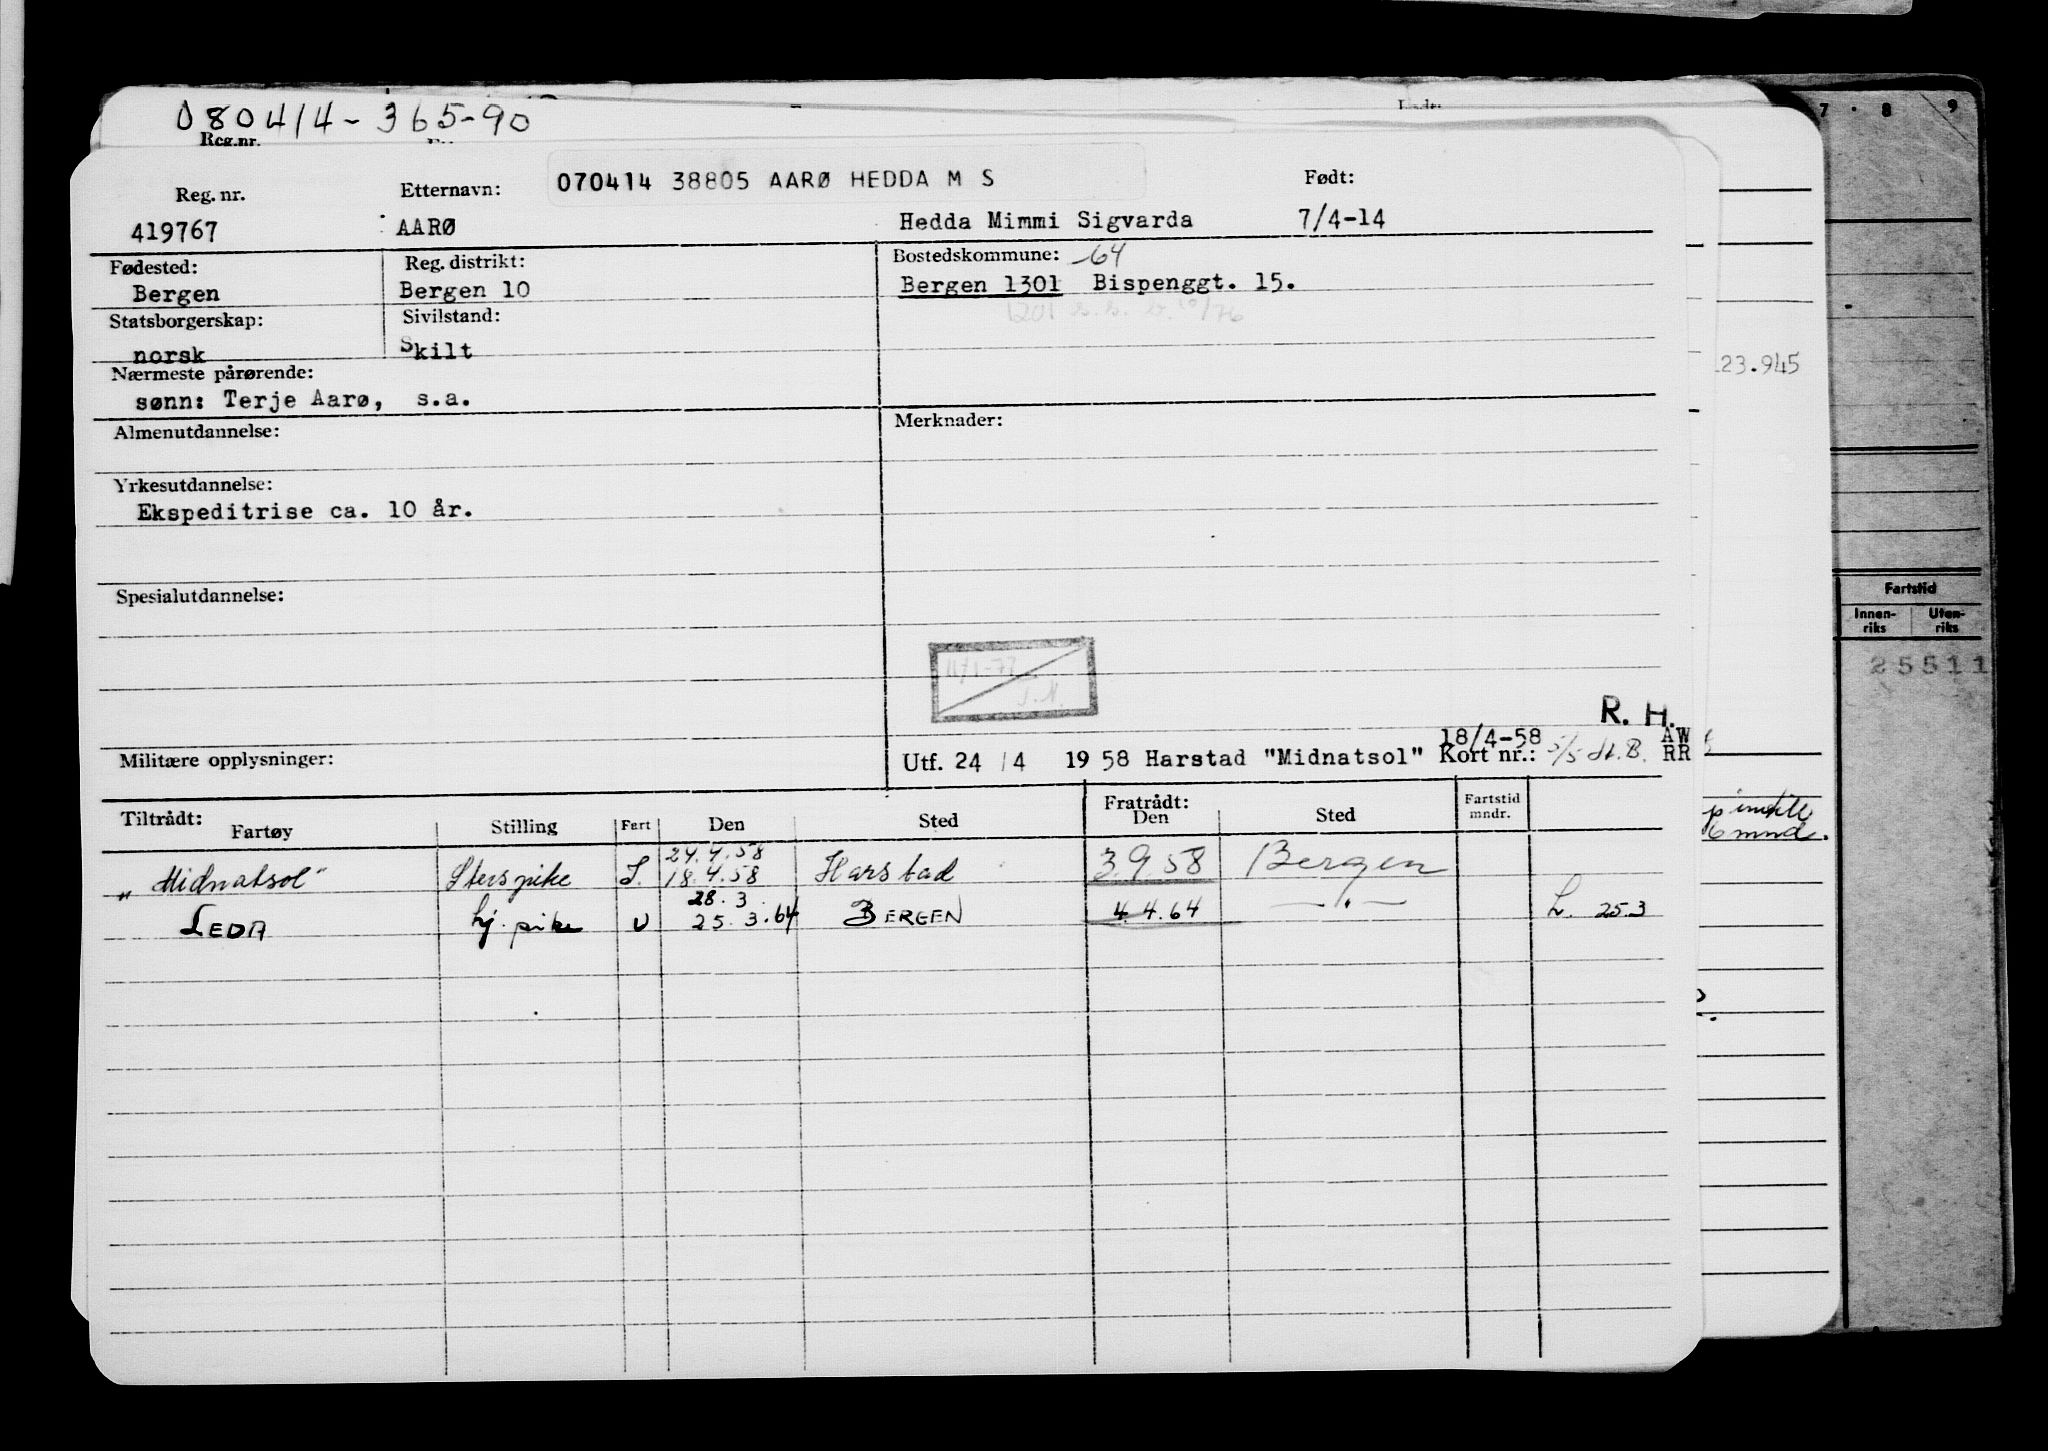 080414-365-90
Reg.nr.
7 . 8 9
070414 38805 AARØ HEDDA M S
Reg. nr. Etternavn: Født:
419767 AARØ Hedda Mimmi Sigvarda 7/4-14
Fødested: Reg. distrikt: Bostedskommune: -64
Bergen Bergen 10 Bergen 1301 Bispenggt. 15.
Statsborgerskap: Sivilstand:
norsk Skilt
Nærmeste pårørende:
sønn: Terje Aarø, s.a.
23.945
Almenutdannelse: Merknader:
Yrkesutdannelse:
Ekspeditrise ca. 10 år.
Spesialutdannelse:
Fartstid
Innen-riks Uten-riks
25511
11/1-77
J.N.
R. H.
18/4-58 AW
Militære opplysninger: Utf. 24 /4 1958 Harstad "Midnatsol" Kort nr.: 5/5 RR
Tiltrådt: Fratrådt:
Fartøy Stilling Fart Den Sted Den Sted Fartstid mndr.
24.4.58
"Midnatsol" Sterspike I. 18.4.58 Harstad 3.9.58 Bergen
28.3.
LEDA hj. pike U 25.3.64 BERGEN 4.4.64 —"— L. 25.3
6 mnd.